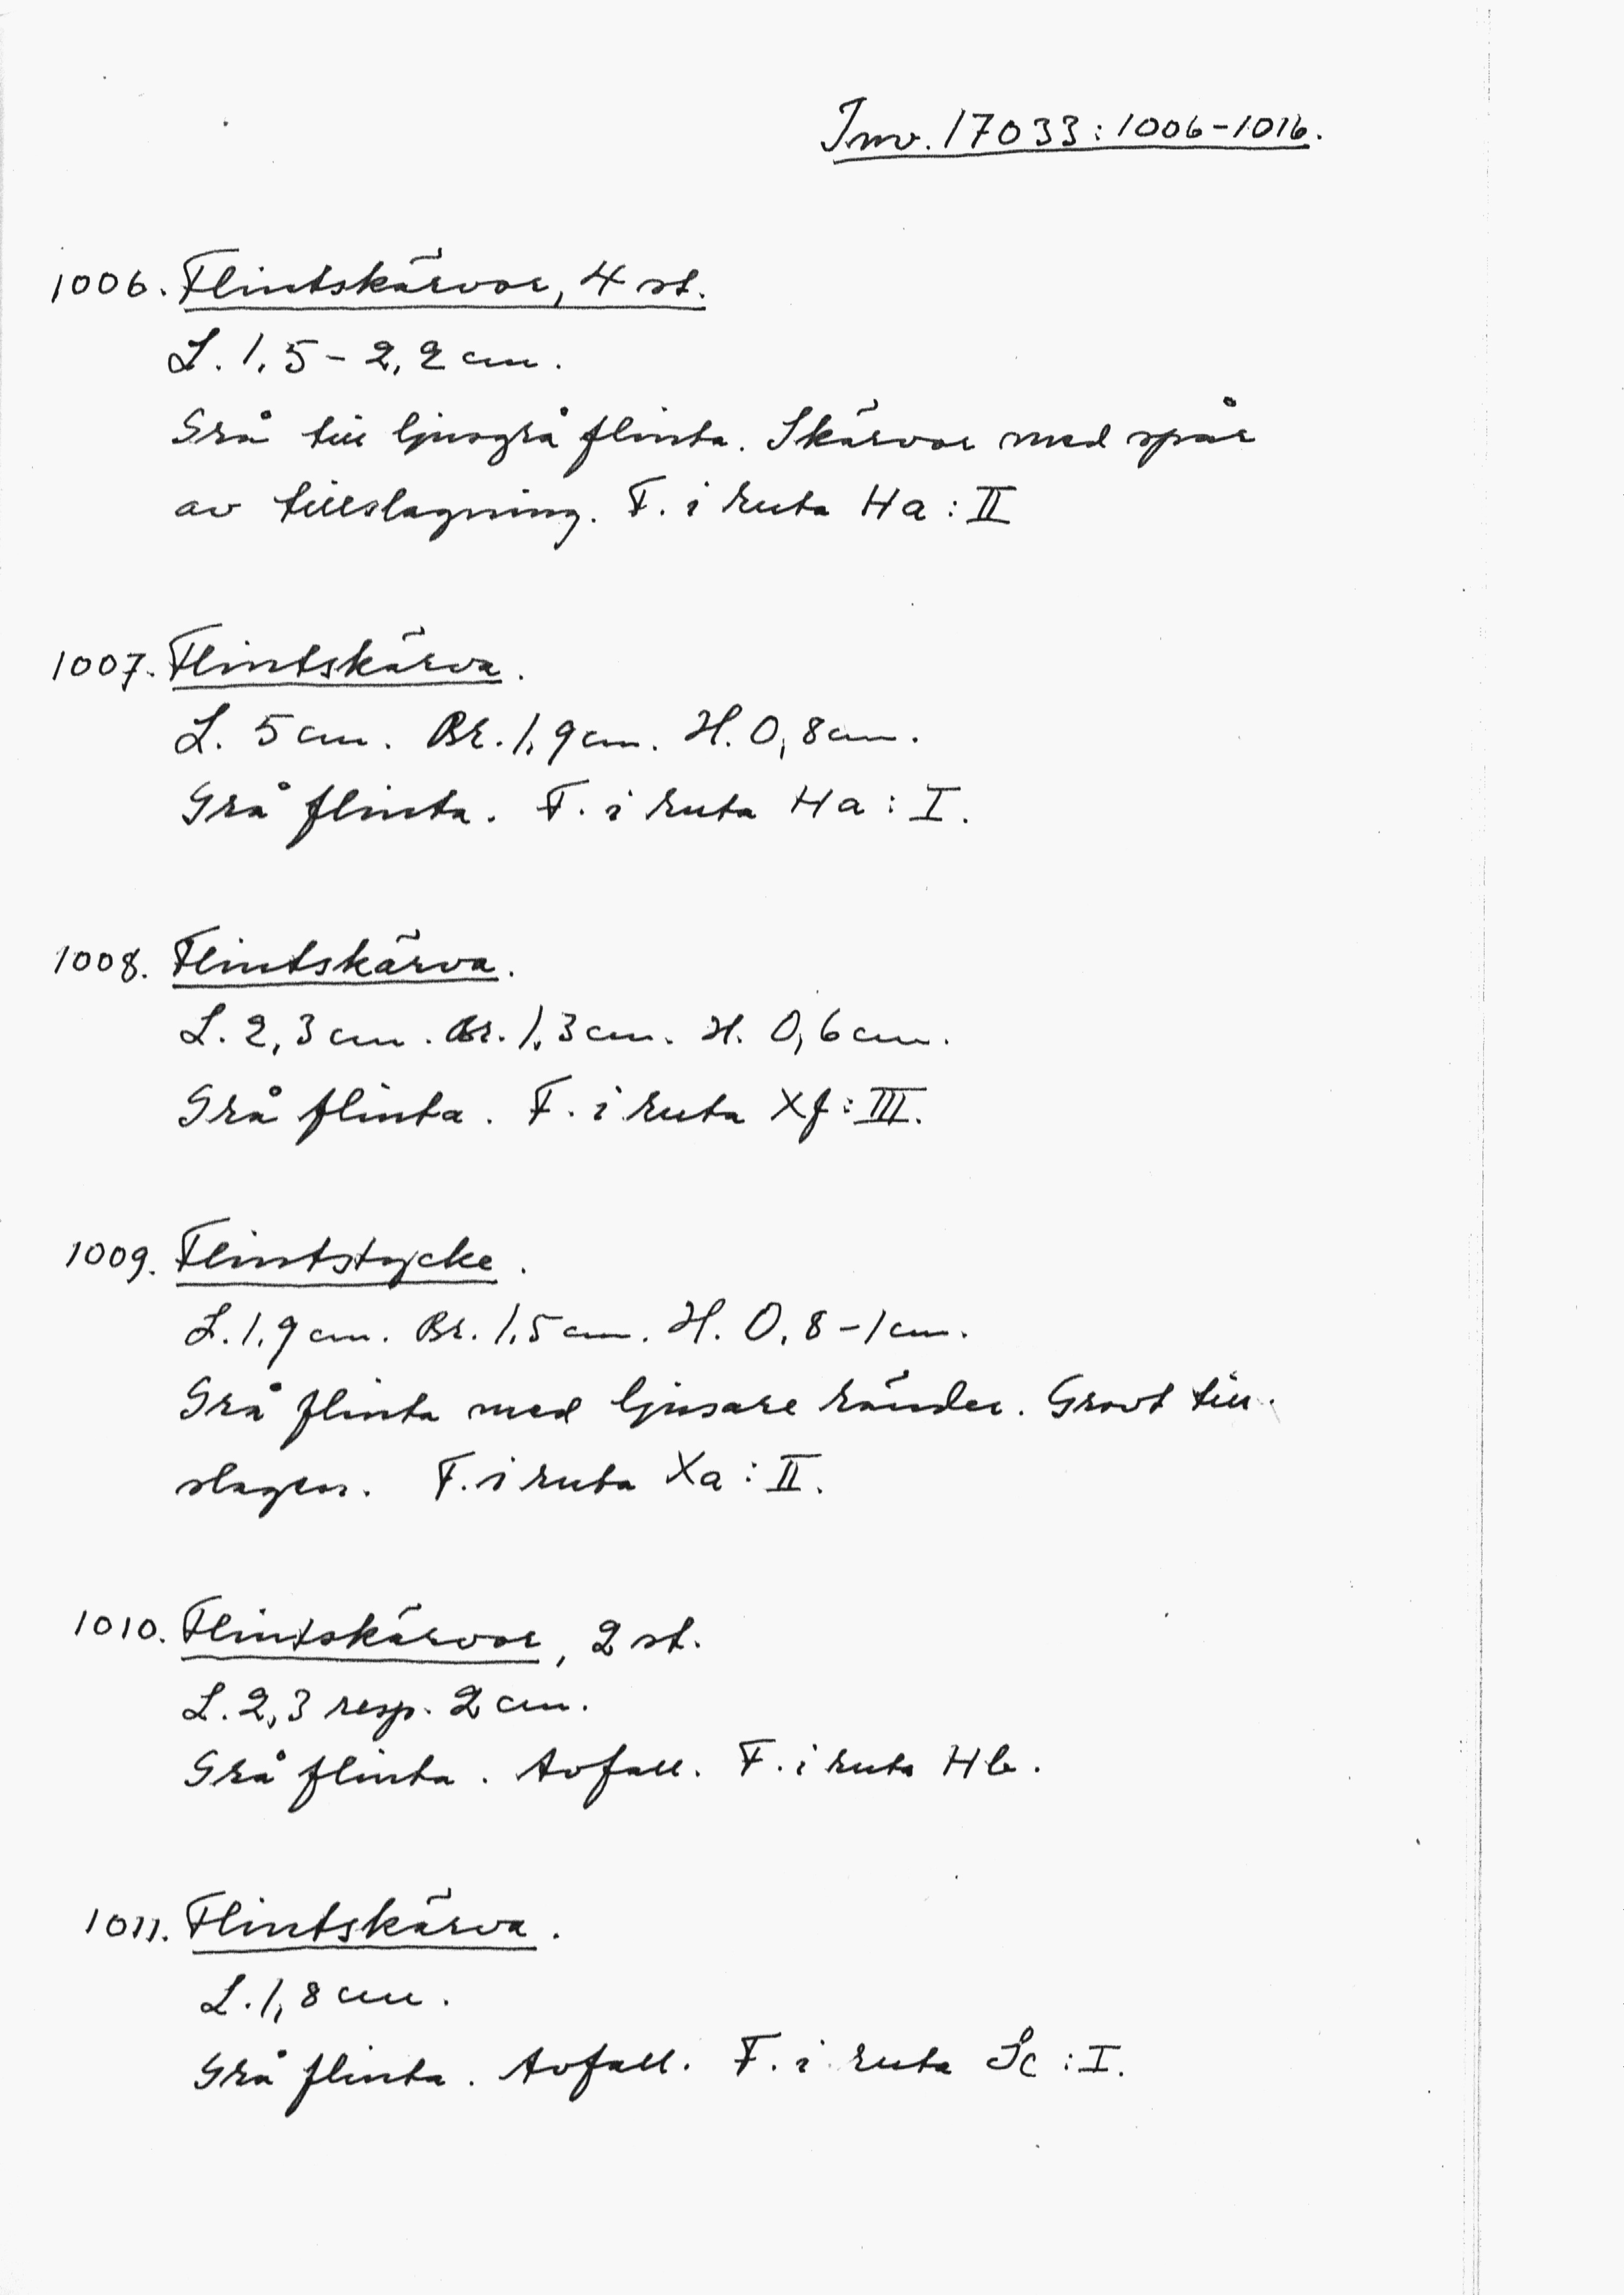 Inv. 17033:1006-1016.
1006. Flintskärvor, 4 st.
L. 1,5 - 2,2 cm.
Grå till ljusgrå flinta. Skärvor med spår
av tillslagning. F. i ruta Ha : II
1007. Flintskärva.
L. 5 cm. Br. 1,9 cm. H. 0,8 cm.
Grå flinta. F. i ruta Ha : I.
1008. Flintskärva.
L. 2,3 cm. Br. 1,3 cm. H. 0,6 cm.
Grå flinta. F. i ruta Xf : III.
1009. Flintstycke.
L. 1,9 cm. Br. 1,5 cm. H. 0,8 - 1 cm.
Grå flinta med ljusare ränder. Grovt till-
slagen. F. i ruta Xa : II.
1010. Flintskärvor, 2 st.
L. 2,3 resp. 2 cm.
Grå flinta. Avfall. F. i ruta Hb.
1011. Flintskärva.
L. 1,8 cm.
Grå flinta. Avfall. F. i ruta Sc : I.